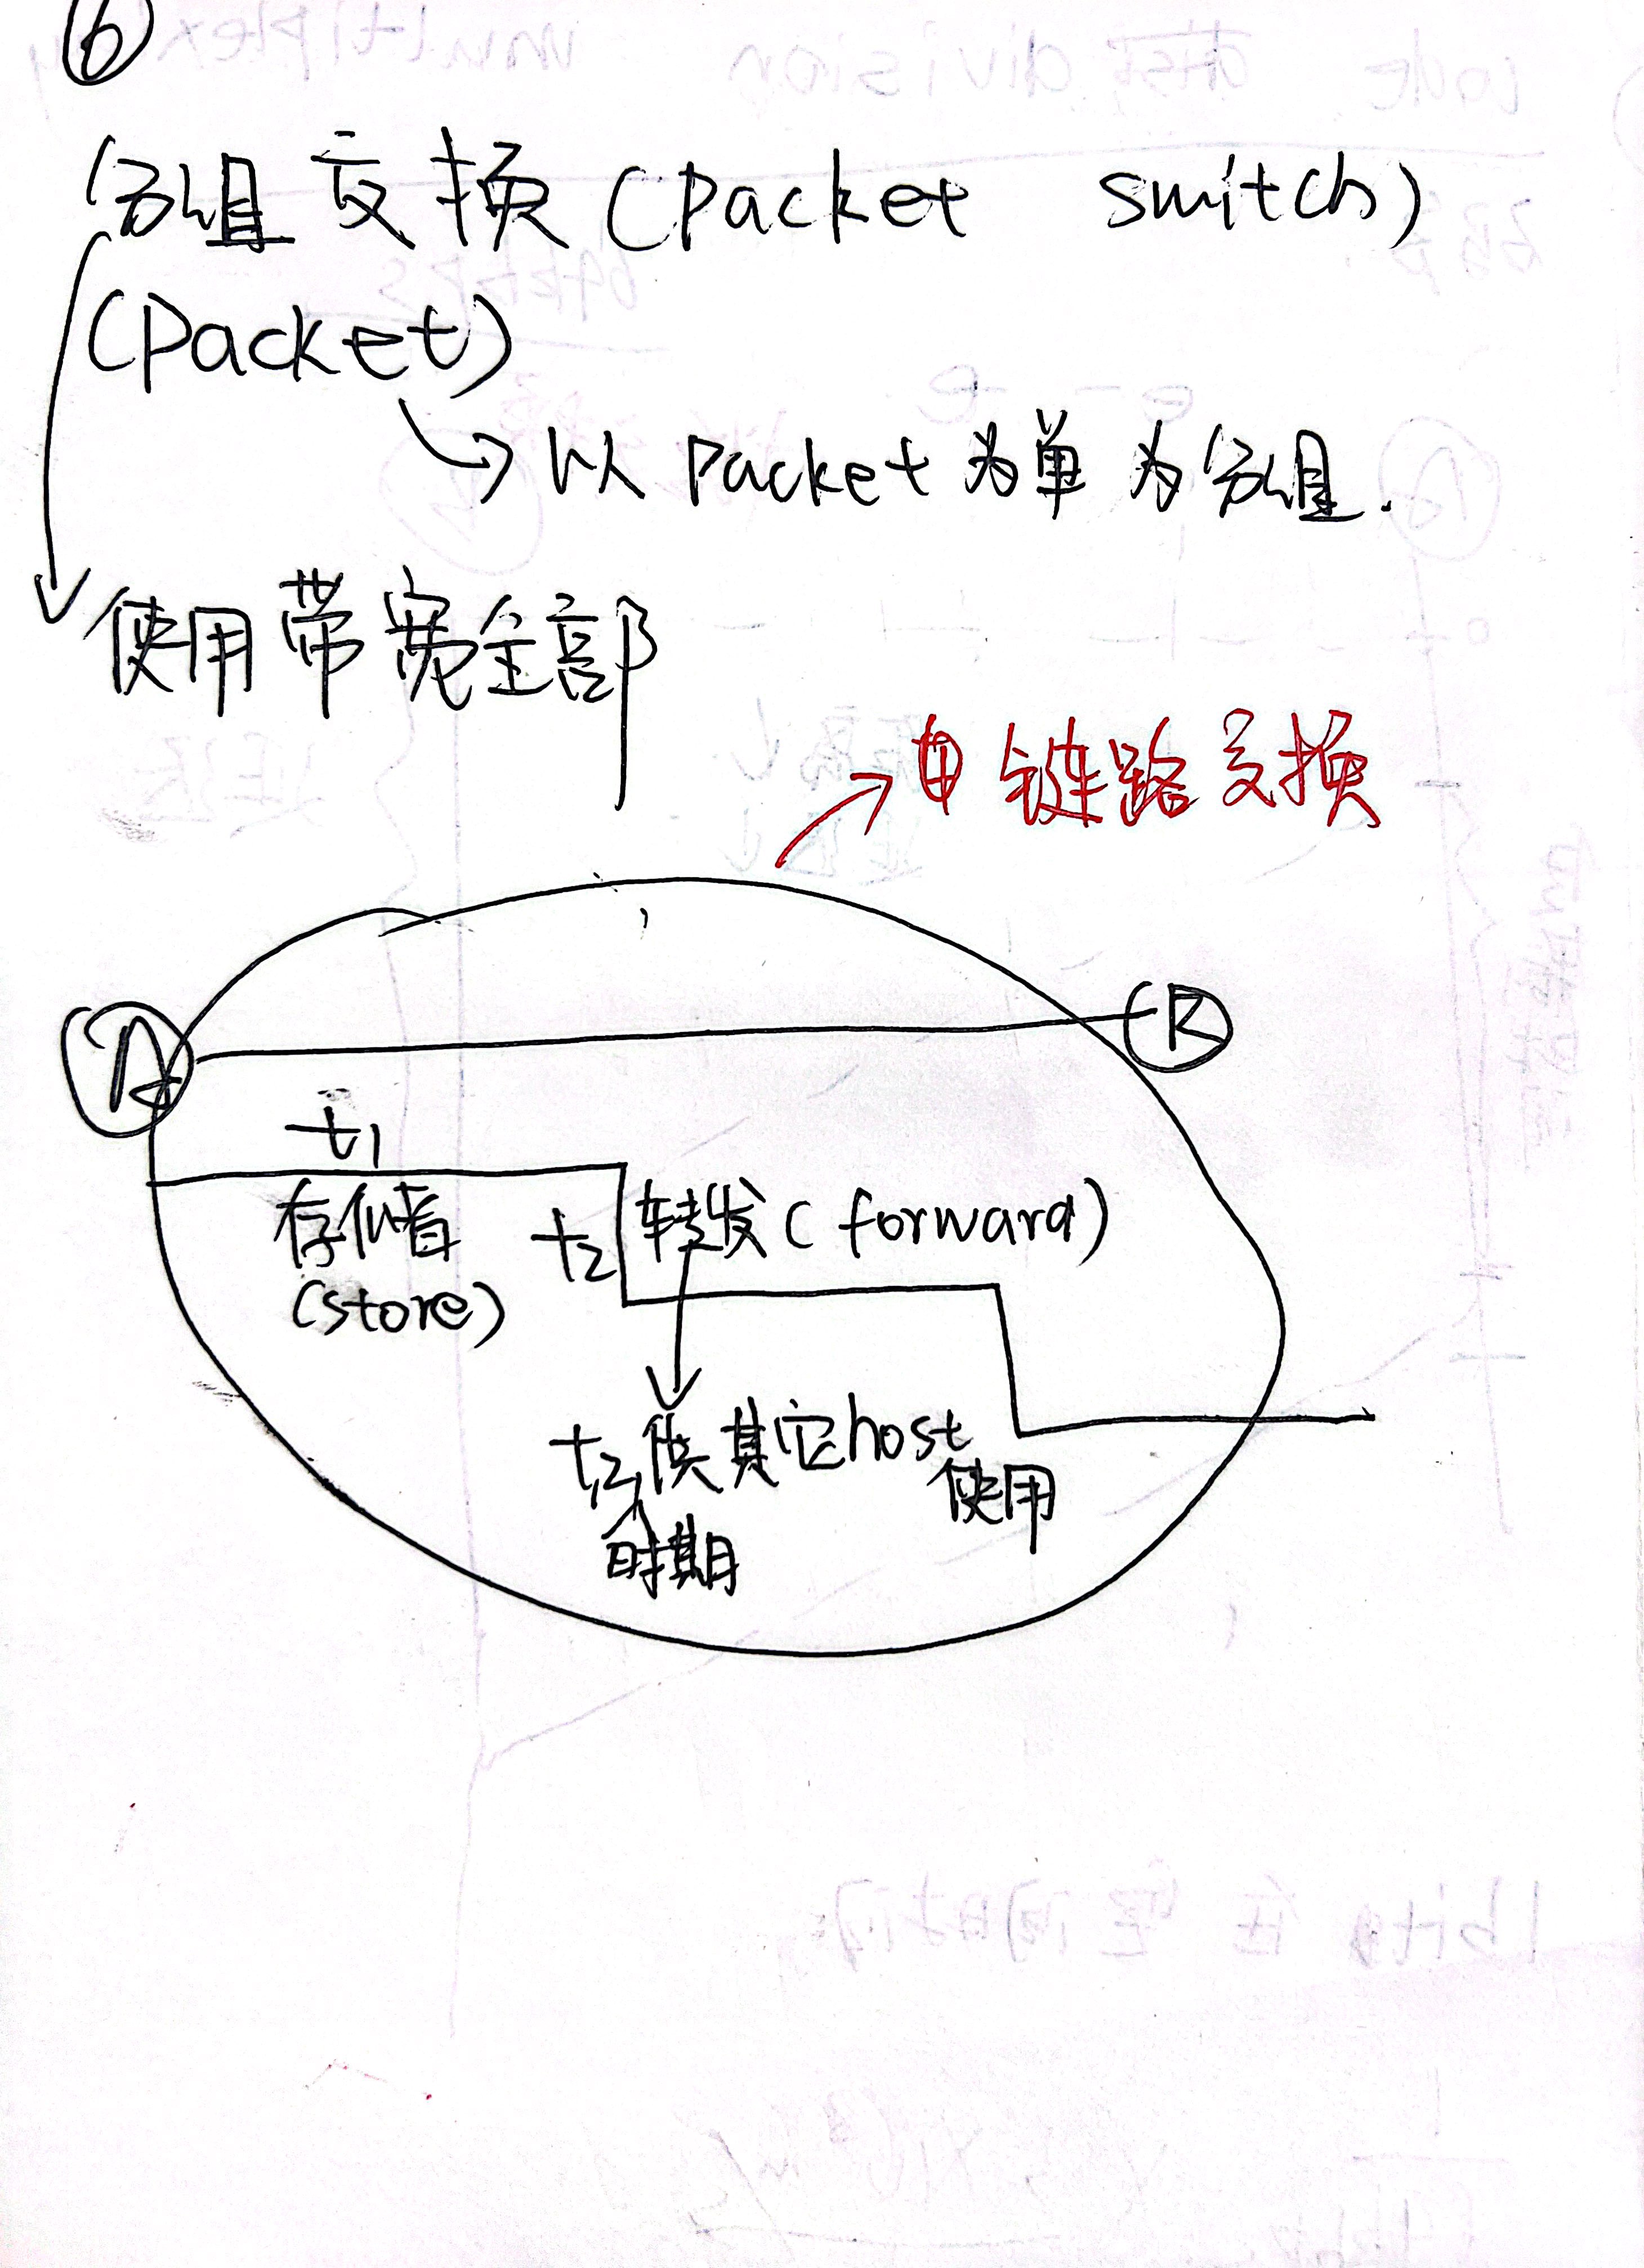 ⑥
分组交换(packet switch)
(packet)
以packet为单为分组.
使用带宽全部
链路交换
A
B
t1
存储
(store)
t2
转发(forward)
t2,供其它host
使用
时期